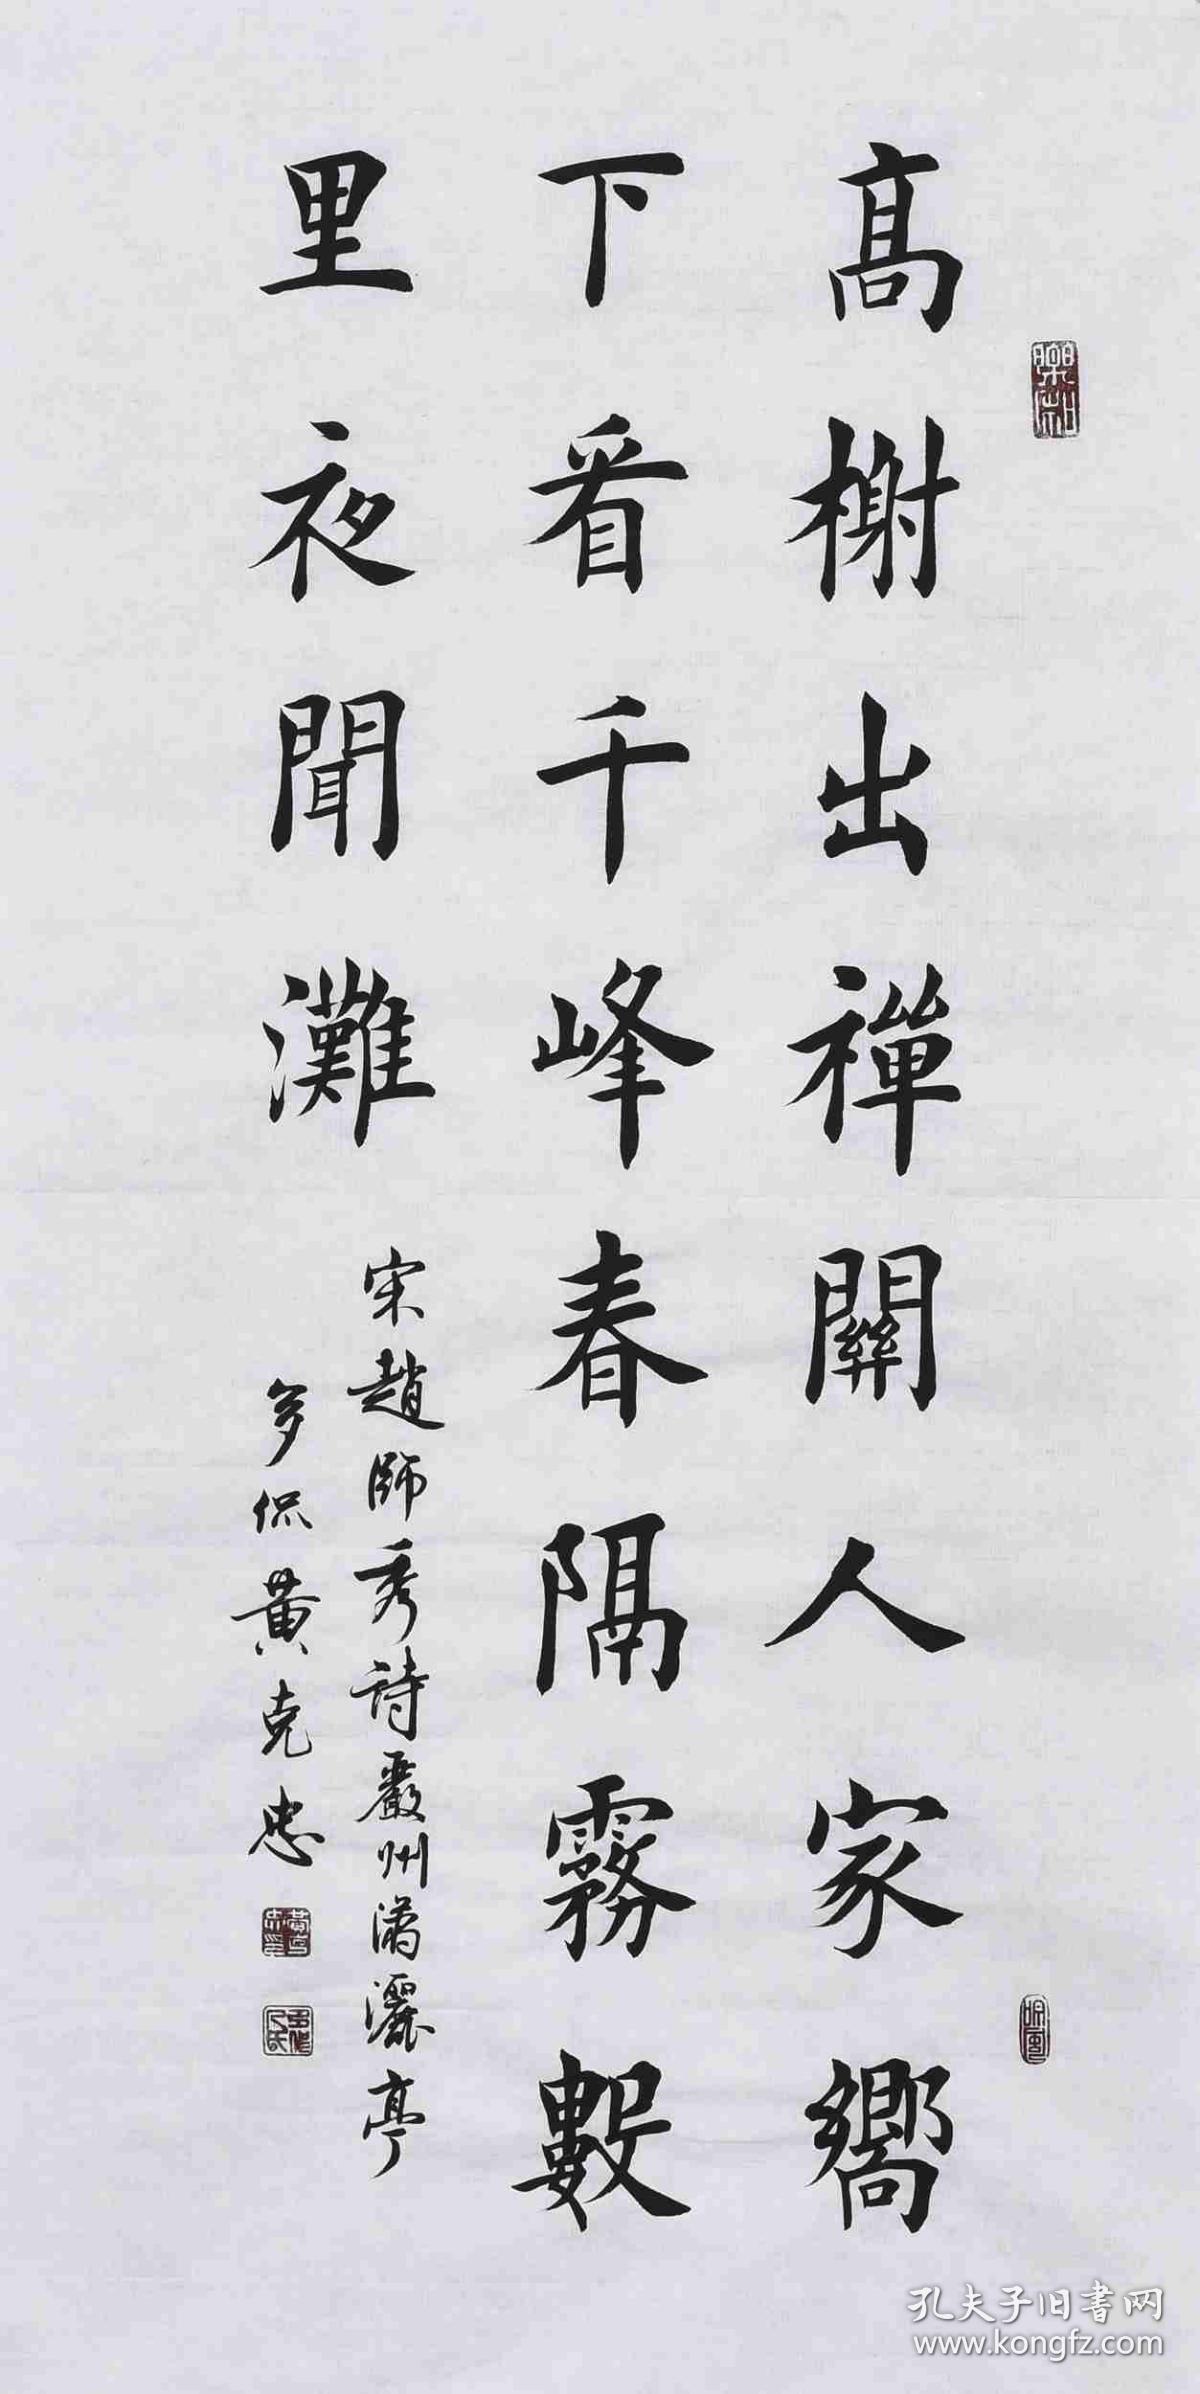 高榭出禪關人家嚮
下看千峰春隔霧數
里夜聞灘
宋趙師秀詩嚴州瀟灑亭
多侃黃克忠
孔夫子旧書网
www.kongfz.com